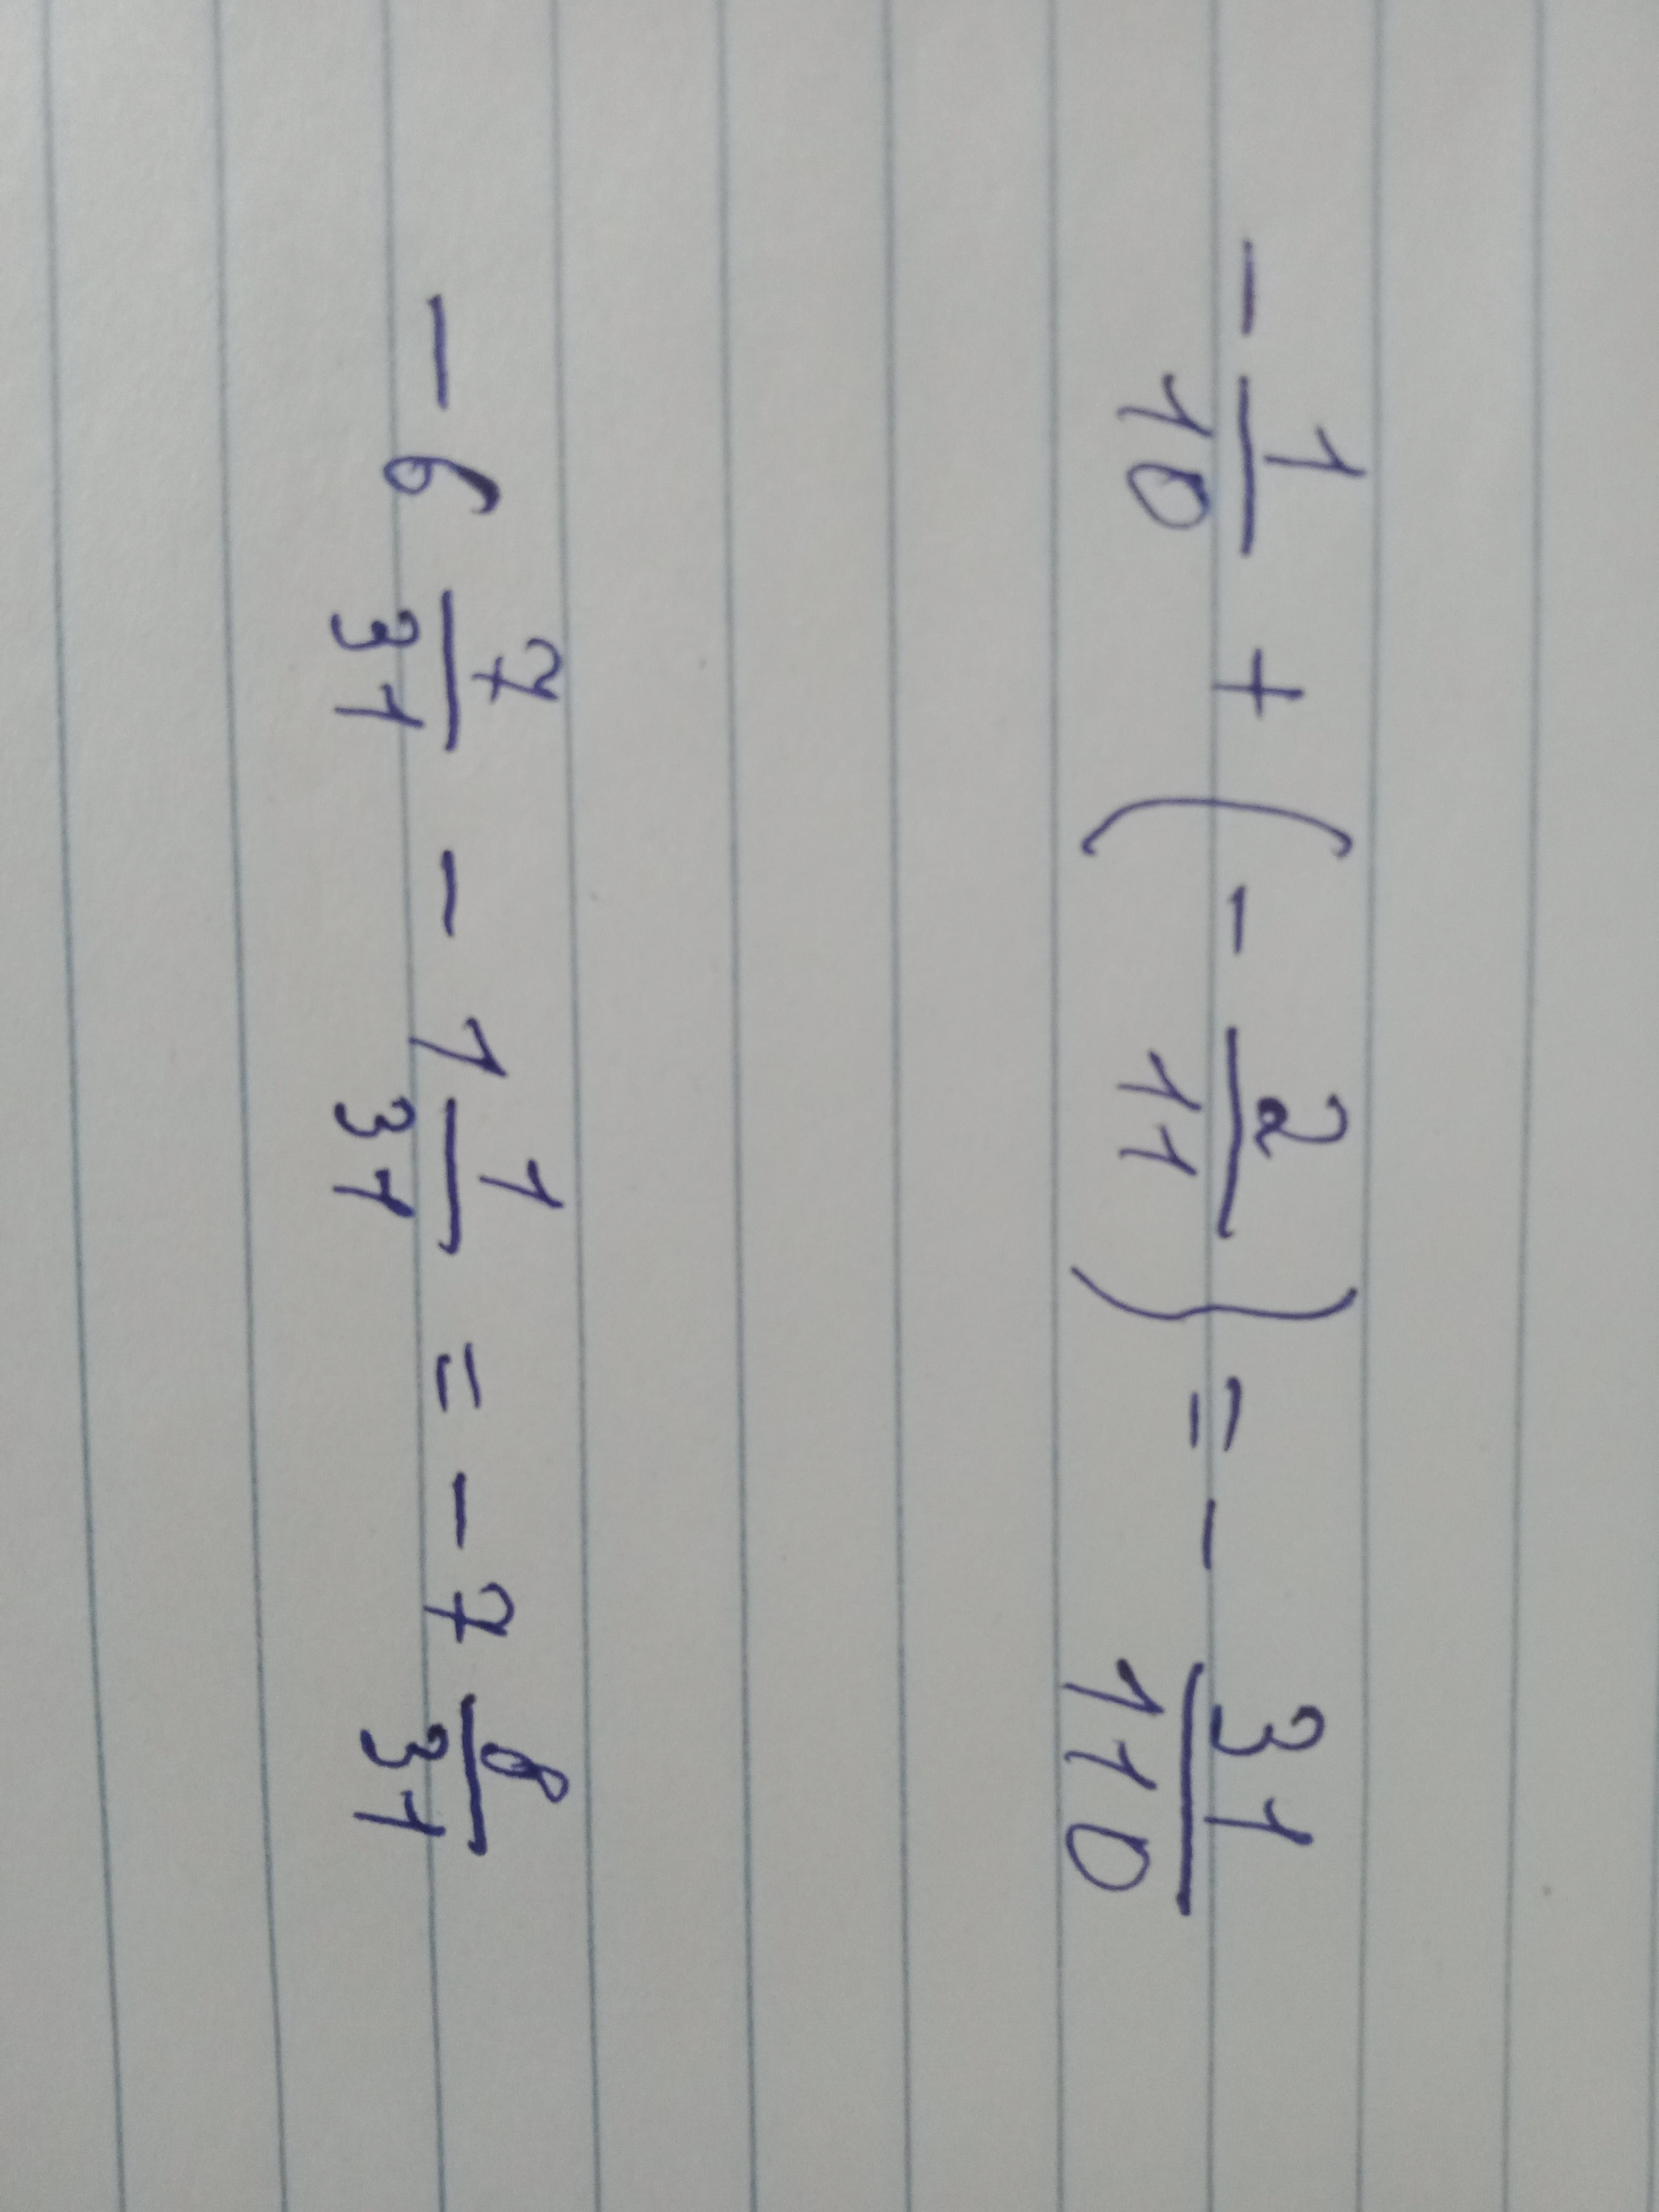 - 1/10 + (- 2/11) = - 31/110
- 6 7/31 - 1 1/31 = - 7 8/31